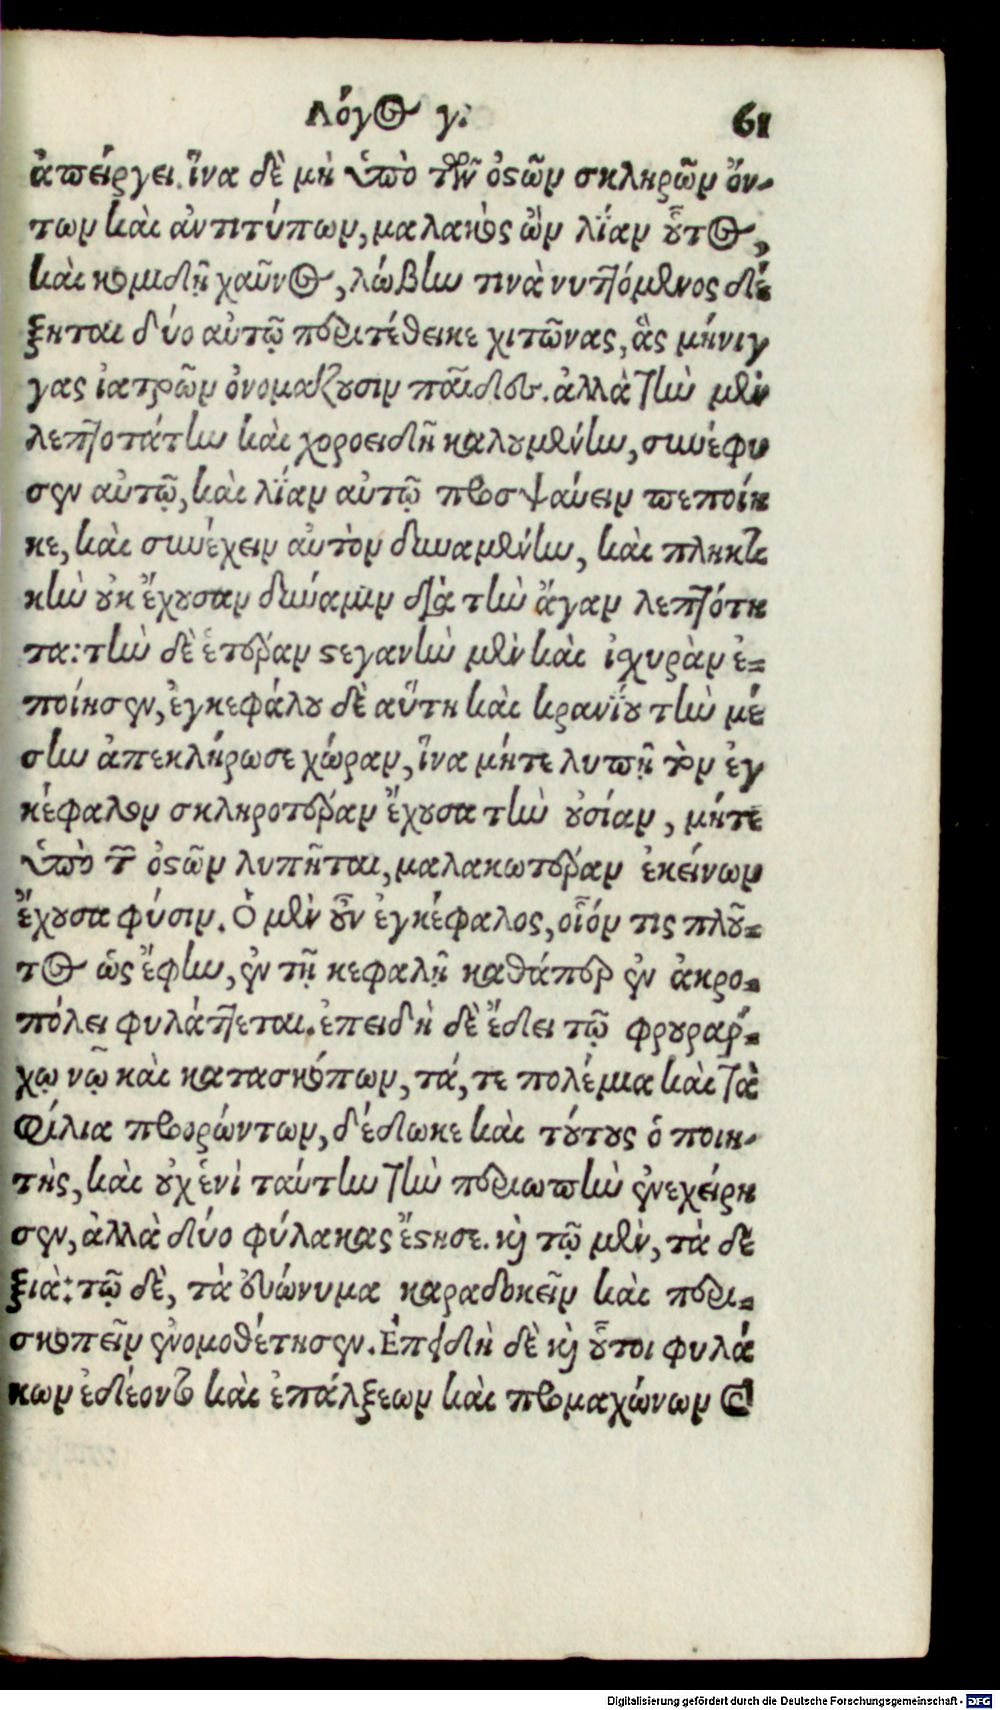 Λόγος γ. 61
ἀπείργει. ἵνα δὲ μὴ ὑπὸ τῶν ὀστῶν σκληρῶν ὄν-
των καὶ ἀντιτύπων, μαλακὸς ὢν λίαν οὗτος,
καὶ κομιδῇ χαῦνος, λώβην τινὰ νυττόμενος δέ
ξηται δύο αὐτῷ περιτέθεικε χιτῶνας, ἃς μήνιγ
γας ἰατρῶν ὀνομάζουσιν παῖδες. ἀλλὰ τὴν μὲν
λεπτοτάτην καὶ χοροειδῆ καλουμένην, συνέφυ
σεν αὐτῷ, καὶ λίαν αὐτῷ προσψαύειν πεποίη
κε, καὶ συνέχειν αὐτὸν δυναμένην, καὶ πληκτι
κὴν οὐκ ἔχουσαν δύναμιν διὰ τὴν ἄγαν λεπτότη
τα: τὴν δὲ ἑτέραν στεγανὴν μὲν καὶ ἰχυρὰν ἐ-
ποίησεν, ἐγκεφάλου δὲ αὕτη καὶ κρανίου τὴν μέ
σην ἀπεκλήρωσε χώραν, ἵνα μήτε λυπῇ τὸν ἐγ
κέφαλον σκληροτέραν ἔχουσα τὴν οὐσίαν, μήτε
ὑπὸ τῶν ὀστῶν λυπῆται, μαλακωτέραν ἐκείνων
ἔχουσα φύσιν. Ὁ μὲν οὖν ἐγκέφαλος, οἷόν τις πλοῦ-
τος ὡς ἔφην, ἐν τῇ κεφαλῇ καθάπερ ἐν ἀκρο-
πόλει φυλάττεται. ἐπειδὴ δὲ ἔδει τῷ φρουράρ-
χῳ νῷ καὶ κατασκόπων, τά, τε πολέμια καὶ τὰ
φίλια προορώντων, δέδωκε καὶ τούτους ὁ ποιη-
τὴς, καὶ οὐχ ἑνὶ ταύτην τὴν περιωπὴν ἐνεχείρη
σεν, ἀλλὰ δύο φύλακας ἔστησε. καὶ τῷ μὲν, τὰ δε
ξιὰ: τῷ δὲ, τὰ εὐώνυμα καραδοκεῖν καὶ περι-
σκοπεῖν ἐνομοθέτησεν. Ἐπειδὴ δὲ καὶ οὗτοι φυλά
κων ἐδέοντο καὶ ἐπάλξεων καὶ προμαχώνων καὶ
Digitalisierung gefördert durch die Deutsche Forschungsgemeinschaft - DFG